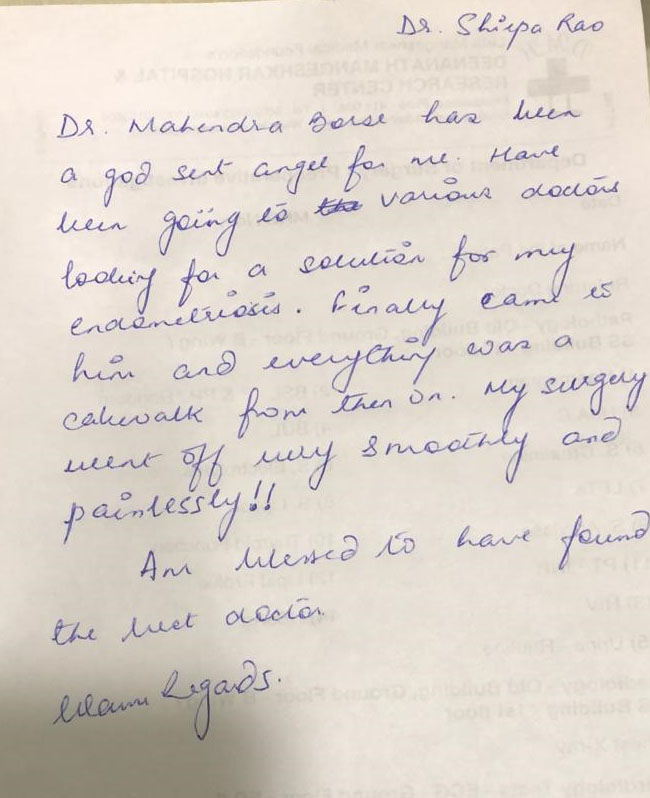 Dr. Shirpa Rao
Dr. Mahendra Borse has been
a god sent angel for me. Have
been going to the various doctors
looking for a solution for my
endometriosis. Finally came to
him and everything was a
cakewalk from then on. My surgery
went off very smoothly and
painlessly!!
Am blessed to have found
the best doctor
Warm Regards.
DEENANATH MANGESHKAR HOSPITAL &
RESEARCH CENTER